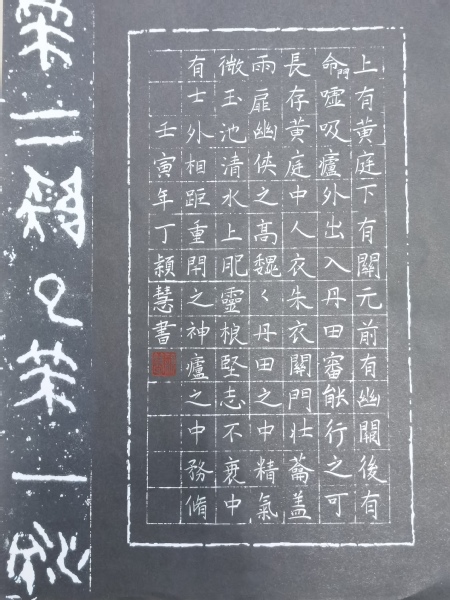 上有黃庭下有關元前有幽闕後有
命門噓吸廬外出入丹田審能行之可
長存黃庭中人衣朱衣關門壯蘥蓋
雨扉幽俠之高魏〻丹田之中精氣
微玉池清水上肥靈根堅志不衰中
有士外相距重閉之神廬之中務脩
壬寅年丁穎慧書